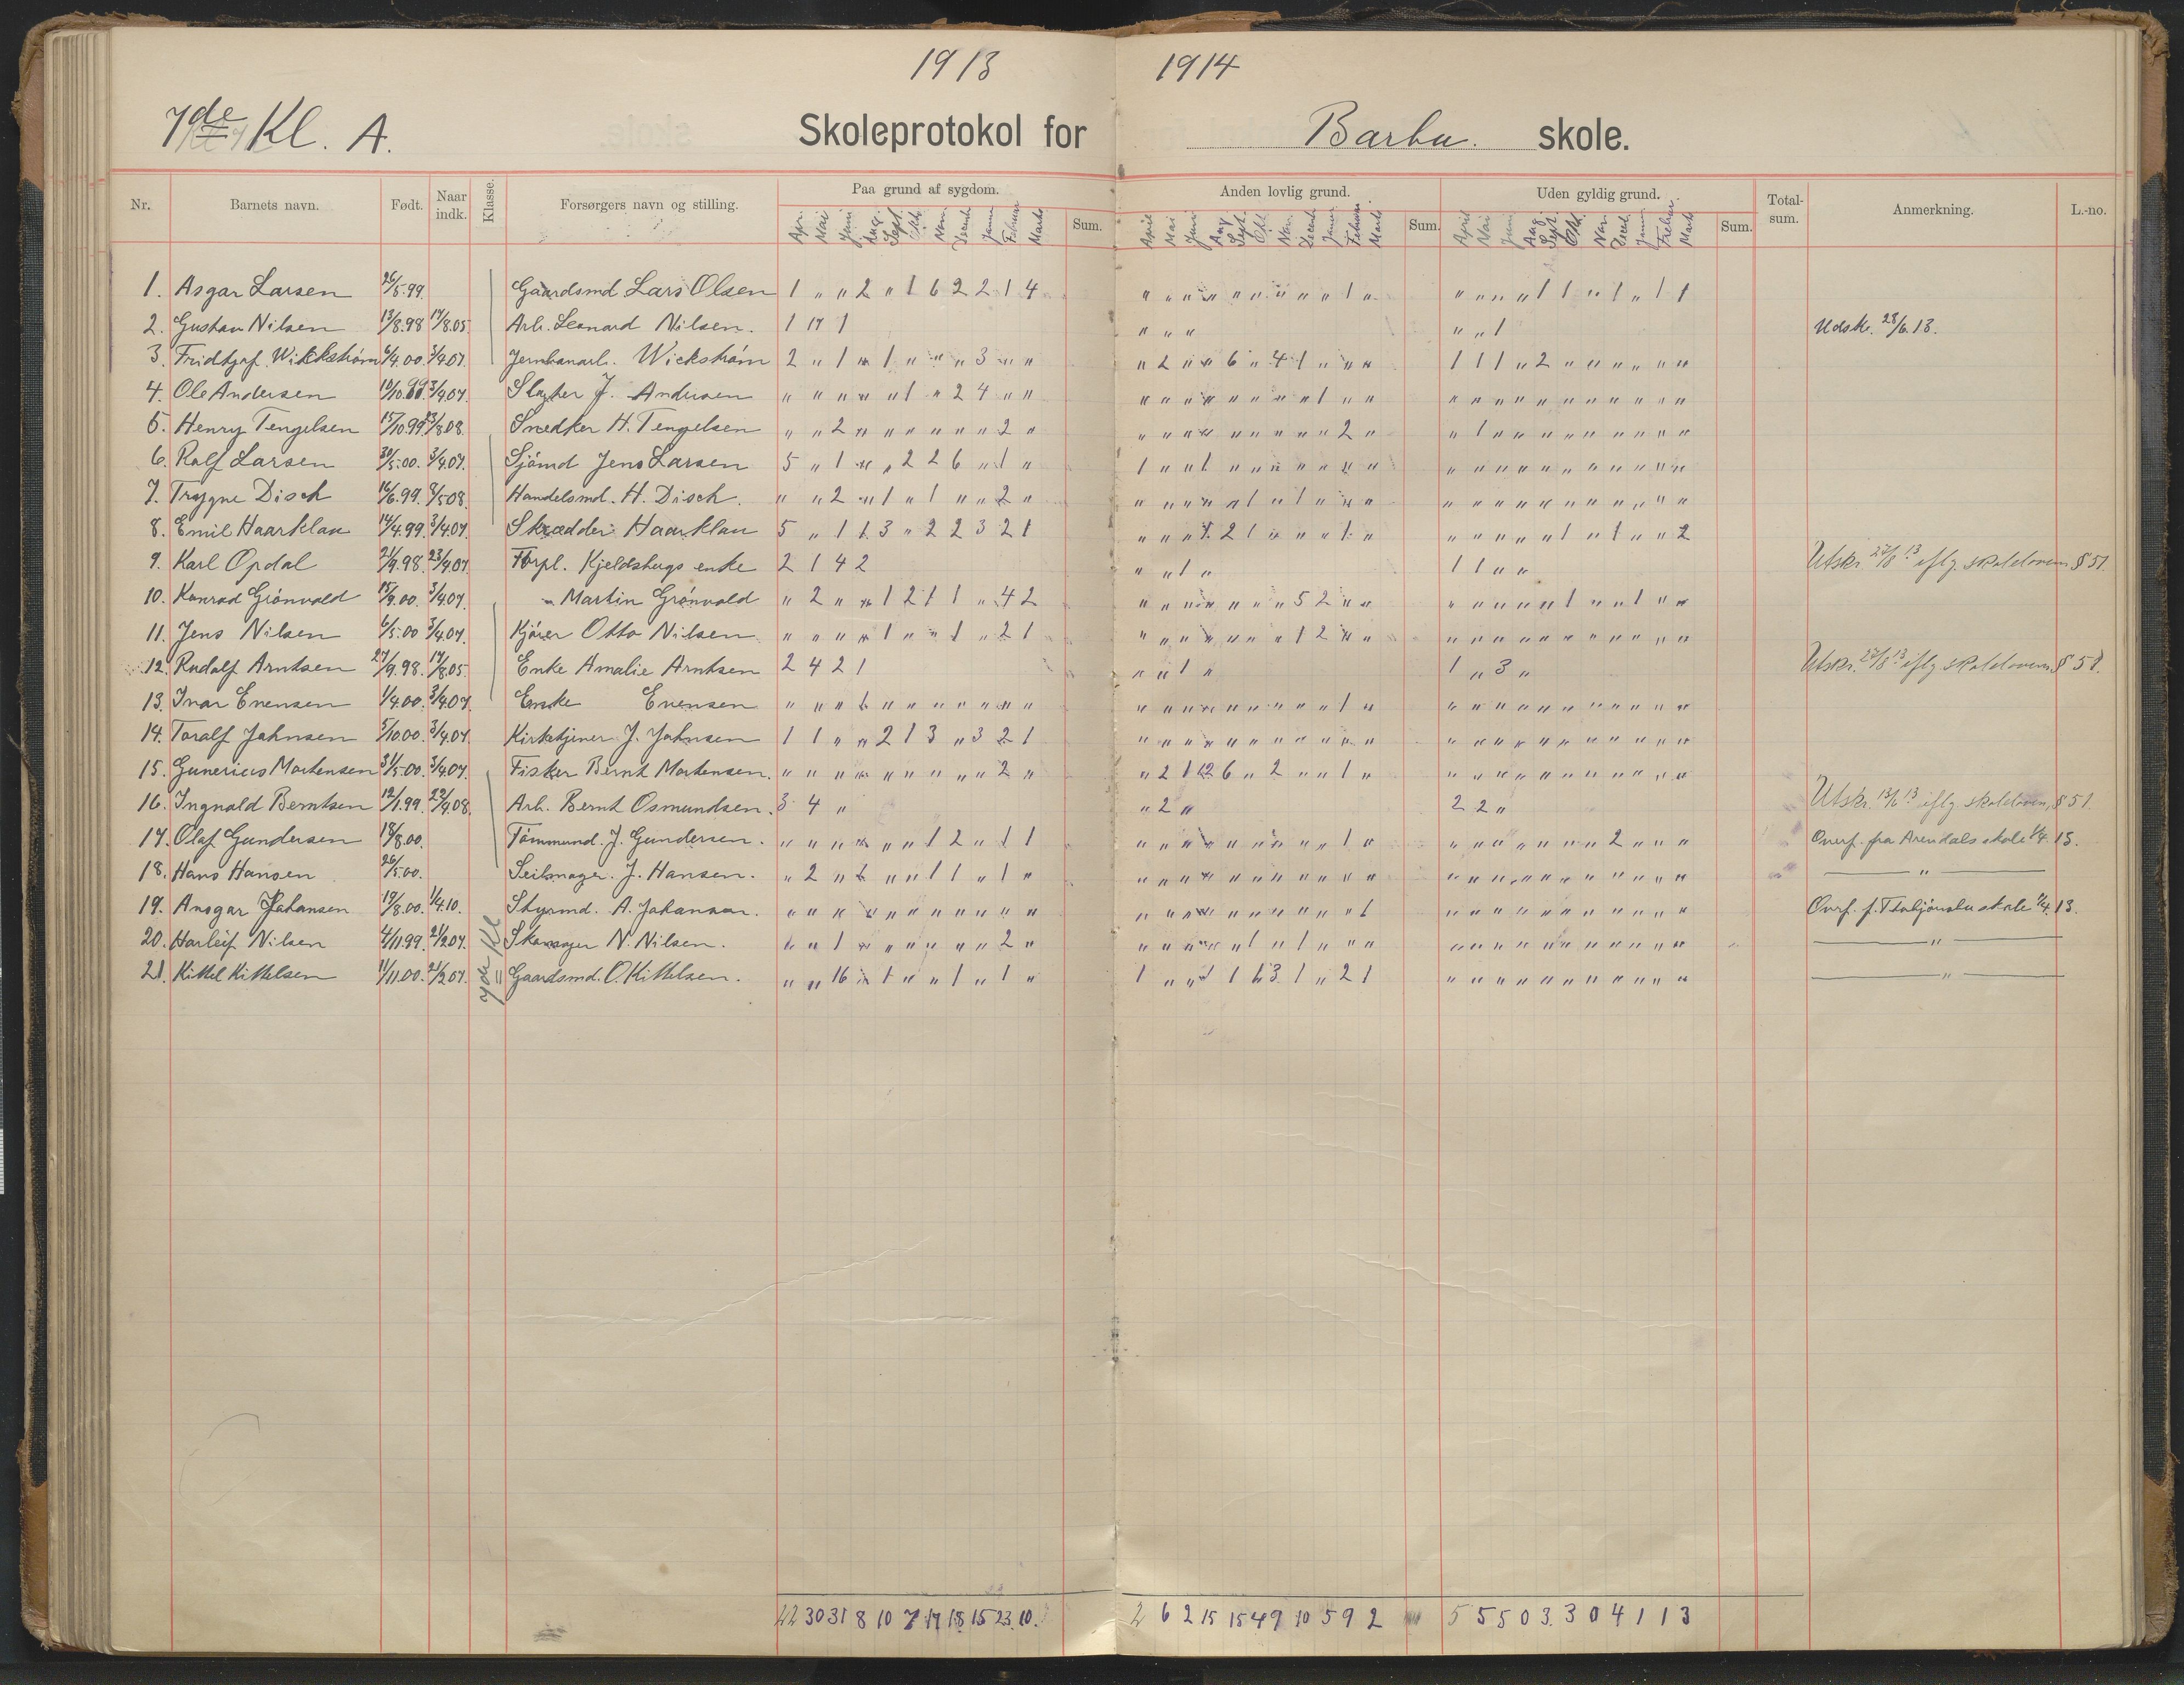 1913 1914
7de Kl. A. Skoleprotokol for Barbu. skole.
Nr. Barnets navn. Født. Naar indk. Klasse. Forsørgers navn og stilling. Paa grund af sygdom. Sum. Anden lovlig grund. Sum. Uden gyldig grund. Sum. Total-sum. Anmerkning. L.-no.
1. Asgar Larsen 26/5.99. Gaardsmd Lars Olsen 1 " " 2 " 1 6 2 2 1 4 " " " " " " " " " 1 " " " " " 1 1 " 1 " 1 1
2. Gustav Nilsen 13/8.98 17/8.05. Arb. Leonard Nilsen. 1 17 1 " " " " " 1 Udskr. 28/6.13.
3. Fridtjof Wickstrøm 6/4.00. 3/4.07. Jernbanarb. Wickstrøm 2 " 1 " 1 " " " 3 " " " 2 " " 6 " 4 1 " " " 1 1 1 " 2 " " " " " "
4. Ole Andersen 10/10.99. 3/4.07. Slagter J. Andersen " " " " " 1 " 2 4 " " " " " " " " " " 1 " " " " " " " " " " " " "
5. Henry Tengelsen 15/10.99. 13/8.08. Snedker H. Tengelsen " " 2 " " " " " " 2 " " " " " " " " " " 2 " " 1 " " " " " " " " "
6. Ralf Larsen 30/5.00. 3/4.07. Sjømd Jens Larsen 5 " 1 " " 2 2 6 " 1 " 1 " " 1 " " " " " " " " " " " " " " " " " "
7. Trygve Disch 16/6.99. 8/5.08. Handelsmd. H. Disch. " " 2 " 1 " 1 " " 2 " " " " " " 1 " 1 " " " " " " " " " " " " " "
8. Emil Haarklau 14/4.99. 3/4.07. Skrædder Haarklau 5 " 1 1 3 " 2 2 3 2 1 " " " 1 2 1 " " " 1 " " " " " " 1 " 1 " " 2
9. Karl Opdal 21/9.98. 23/4.07. Forpl. Kjeldsbergs enke 2 1 4 2 " " 1 " 1 1 " " Utskr. 27/8 13 iflg. skoleloven § 51.
10. Konrad Grønvold 15/9.00. 3/4.07. " Martin Grønvold " 2 " " " 1 2 1 1 " 4 2 " " " " " " " 5 2 " " " " " " " 1 " " 1 " "
11. Jens Nilsen 6/5.00 3/4.07. Kjører Otto Nilsen " " " " 1 " " 1 " 2 1 " " " " " " " 1 2 " " " " " " " " " " " " "
12. Rudolf Arntsen 27/9.98. 17/8.05. Enke Amalie Arntsen 2 4 2 1 " " 1 " 1 " 3 " Utskr. 27/8 13 iflg. skoleloven § 51.
13. Ivar Evensen 1/4.00. 3/4.07. Enke Evensen " " " 1 " " " " " " " " " " " " " " " " 1 " " " " " " " " " " " " "
14. Toralf Johnsen 5/10.00. 3/4.07. Kirketjener J. Johnsen 1 1 " " 2 1 3 " 3 2 1 " " " " " " " " " " " " " " " " " " " " " "
15. Gunerius Mortensen 31/5.00. 3/4.07. Fisker Bernt Mortensen. " " " " " " " " " 2 " " 2 1 12 6 " 2 " " 1 " " " " " " " " " " " "
16. Ingvald Berntsen 12/1.99. 22/4.08. Arb. Bernt Osmundsen. 3 4 " " 2 " 2 2 " Utskr. 13/6 13 iflg. skoleloven, § 51.
17. Olaf Gundersen 18/8.00. Tømmermd. J. Gundersen. " " " " " " 1 2 " 1 1 " " " " " " " " " 1 " " " " " " " " 2 " " " Overf. fra Arendals skole 1/4. 13.
18. Hans Hansen 26/5.00. Seilmager. J. Hansen. " 2 " 1 " " 1 1 " 1 " " " " " " " " " " " " " " " " " " " " " " " "
19. Ansgar Johansen 19/8.00. 1/4.10. Styrmd. A. Johansen. " " " " " " " " " " " " " " " " " " " " " 1 " " " " " " " " " " " Overf. f. Stabjønsbu skole 1/4. 13.
20. Harleif Nilsen 4/11.99. 21/2.07. Skomager N. Nilsen. " " 1 " " " " " " 2 " " " " " " 1 " 1 " " " " " " " " " " " " " " "
21. Kittel Kittelsen 11/11.00. 21/2.07. Gaardsmd. O. Kittelsen. " " 16 " 1 " " 1 " 1 " 1 " " 1 1 6 3 1 " 2 1 " " " " " " " " " " " "
7de Kl
22 30 31 8 10 7 17 18 15 23 10. 2 6 2 15 15 4 9 10 5 9 2 5 5 5 0 3 3 0 4 1 1 3